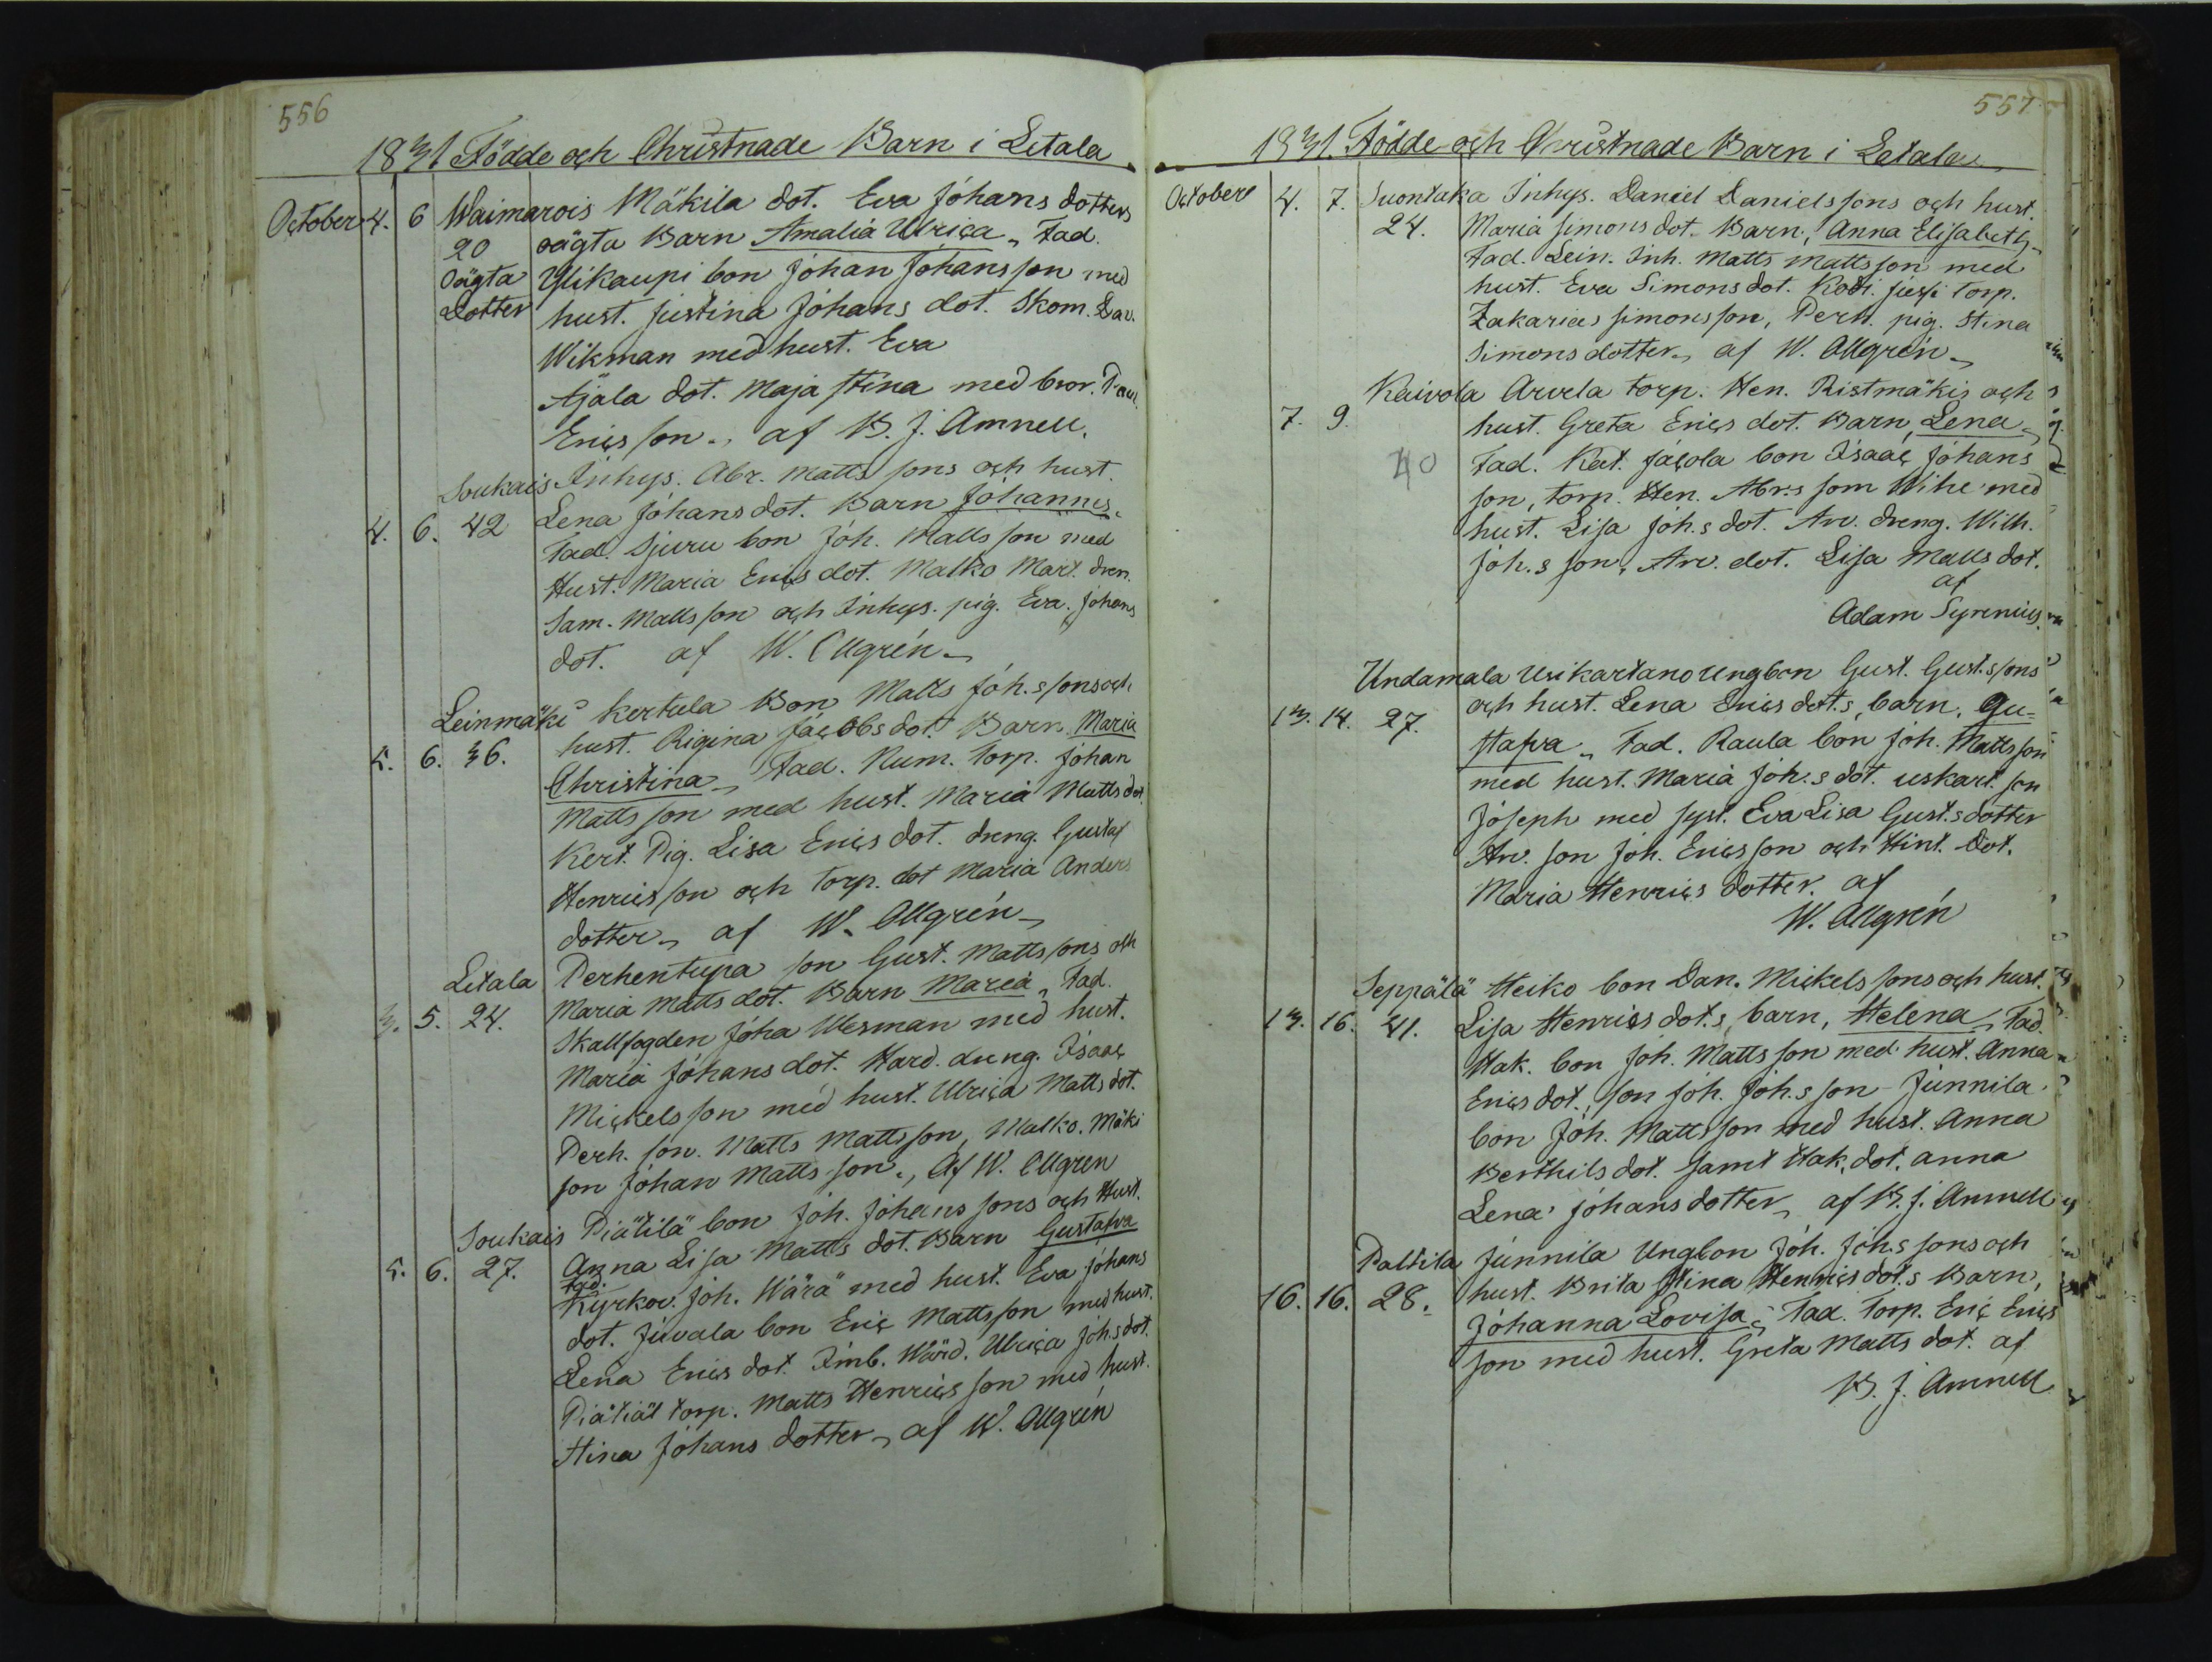 556
1831 Födde och Christnade Barn i Letala
October 4. 6 Waimarois Mäkila dot. Eva Johans dotters
20 oägta Barn Amalia Ulrica, Fad.
Oägta Ylikaupi bon Johan Johansson med
Dotter hust. Justina Johans dot. Skom. Dav.
Wikman med hust. Eva
Äjäla dot. Maja Stina med bror.
Ericsson., af B. J. Amnell.
Soukais Inhys. Abr. Matts sons och hust.
4. 6. 42 Lena Johans dot. Barn Johannes.
Fad. Sjuru bon Joh. Matts son med
Hust. Maria Erics dot. Malko Mart. dren.
Sam. Matts son och Inhys. pig. Eva. Johans
dot. af W. Allgrén
Leinmäki Kertula Bon Matts Joh.s sons och
hust. Rigina Jacobs dot. Barn Maria
5. 6. 36. Christina, Fad. Num. Torp. Johan
Matts son med hust. Maria Matts dot.
Kert. Pig. Lisa Erics dot. dreng. Gustaf
Henricsson och torp. dot Maria Anders
dotter, af W. Allgrén
Letala Perhentupa son Gust. Matts sons och
3. 5. 24. Maria Matts dot. Barn Maria, Fad.
Skallfogden Joha Wesman med hust.
Maria Johans dot. Hard. dreng. Isaac
Mickels son med hust. Ulrica Matts dot.
Perh. son. Matts Mattsson, Malko. Mäki
son Johan Matts son., Af W. Allgren
Soukais Piätilä bon Joh. Johans sons och Hust.
5. 6. 27. Anna Lisa Matts dot. Barn Gustafva
Fad.
Kyrkov. Joh. Wärä med hust. Eva Johans
dot. Juvala bon Eric Mattsson med hust.
Lena Erics dot. Timb. Wärd. Ulrica Joh.s dot.
Piätiäl torp. Matts Henrics son med hust.
Stina Johans dotter, af W. Allgrén
557
1831. Födde och Christnade Barn i Letala
October 4. 7. Suontaka Inhys. Daniel Danielssons och hust.
24. Maria Simons dot. Barn, Anna Elisabeth,
Fad. Lein. Inh. Matts Mattsson med
hust. Eva Simons dot. Kodi. Jussi torp.
Zakarias Simonsson, Perh. pig. Stina
Simons dotter, af W. Allgrén
Kaivola Arvela torp. Hen. Ristmäkis och
7. 9. hust. Greta Erics dot. Barn, Lena,
40 Fad. Kat. Jacola bon Isaac Johans
son, torp. Hen. Abr:s son Wihe med
hust. Lisa Joh.s dot. Arv. dreng. Wilh.
Joh.s son, Arv. dot. Lisa Matts dot.
af
Adam Syrenius
Undamala Usikartano Ungbon Gust. Gust.s sons
13. 14. 27. och hust. Lena Erics dot.s, barn, Gu=
stafva, Fad. Raula bon Joh. Mattsson
med hust. Maria Joh.s dot. uskart. son
Joseph med syst. Eva Lisa Gust.s dotter
Arv. son Joh. Ericsson och Hint. dot.
Maria Henrics dotter. af
W. Allgrén
Seppälä Heiko bon Dan. Mickels sons och hust.
13. 16. 41. Lisa Henrics dot.s, barn, Helena, Fad.
Hak. bon Joh. Matts son med hust. Anna
Erics dot., son Joh. Joh.s son Junnila
bon Joh. Mattsson med hust. Anna
Berthils dot. samt Hak. dot. anna
Lena Johans dotter, af B. J. Amnell
Paltila Junnila Ungbon Joh. Joh.s sons och
16. 16. 28. hust. Brita Stina Henrics dot.s Barn,
Johanna Lovisa, Fad. Torp. Eric Erics
son med hust. Greta Matts dot. af
B. J. Amnell